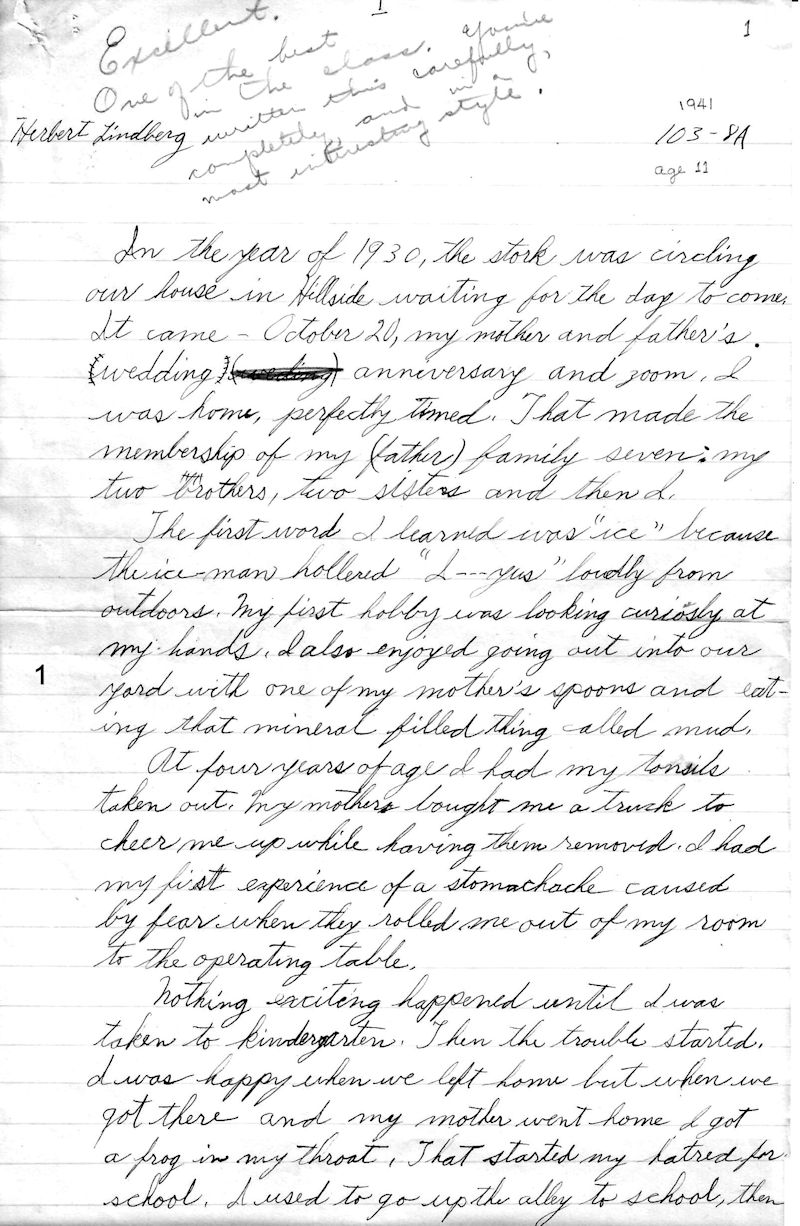 1
1
Excellent.
One of the best
in the class. You've
written this carefully,
completely, and in a
most interesting style.
Herbert Lindberg
1941
103-8A
age 11
In the year of 1930, the stork was circling
our house in Hillside waiting for the day to come.
It came - October 20, my mother and father's.
(wedding) (weding) anniversary and zoom, I
was home, perfectly timed. That made the
membership of my (father) family seven: my
two brothers, two sisters and then I.
The first word I learned was "ice" because
the ice-man hollered "I---yus" loudly from
outdoors. My first hobby was looking curiosly at
my hands. I also enjoyed going out into our
1
yard with one of my mother's spoons and eat-
ing that mineral filled thing called mud.
At four years of age I had my tonsils
taken out. My mother bought me a truck to
cheer me up while having them removed. I had
my first experience of a stomachache caused
by fear when they rolled me out of my room
to the operating table.
Nothing exciting happened until I was
taken to kindergarten. Then the trouble started.
I was happy when we left home but when we
got there and my mother went home I got
a frog in my throat. That started my hatred for
school. I used to go up the alley to school, then